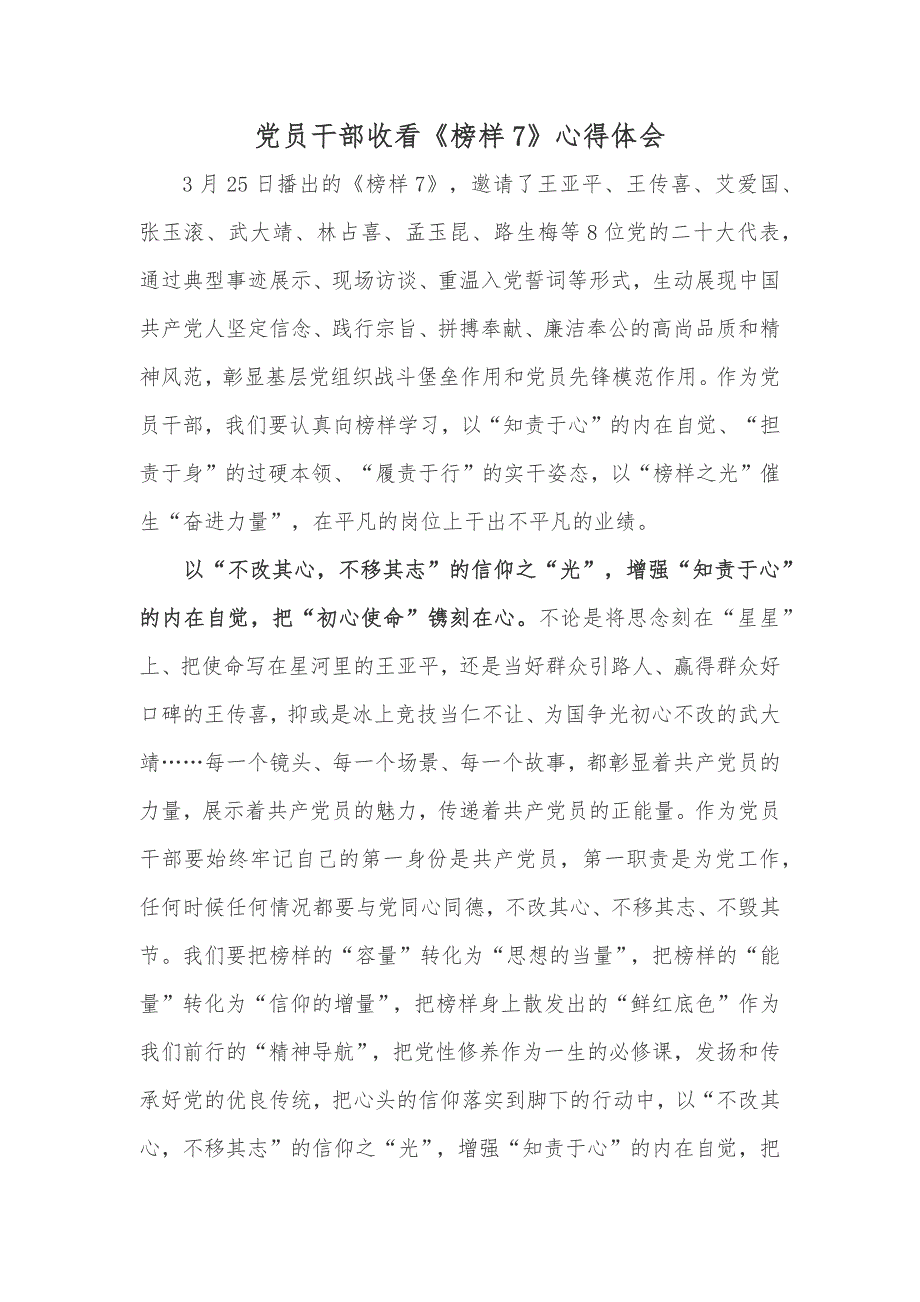 党员干部收看《榜样7》心得体会
3月25日播出的《榜样7》，邀请了王亚平、王传喜、艾爱国、
张玉滚、武大靖、林占喜、孟玉昆、路生梅等8位党的二十大代表，
通过典型事迹展示、现场访谈、重温入党誓词等形式，生动展现中国
共产党人坚定信念、践行宗旨、拼搏奉献、廉洁奉公的高尚品质和精
神风范，彰显基层党组织战斗堡垒作用和党员先锋模范作用。作为党
员干部，我们要认真向榜样学习，以“知责于心”的内在自觉、“担
责于身”的过硬本领、“履责于行”的实干姿态，以“榜样之光”催
生“奋进力量”，在平凡的岗位上干出不平凡的业绩。
以“不改其心，不移其志”的信仰之“光”，增强“知责于心”
的内在自觉，把“初心使命”镌刻在心。不论是将思念刻在“星星”
上、把使命写在星河里的王亚平，还是当好群众引路人、赢得群众好
口碑的王传喜，抑或是冰上竞技当仁不让、为国争光初心不改的武大
靖……每一个镜头、每一个场景、每一个故事，都彰显着共产党员的
力量，展示着共产党员的魅力，传递着共产党员的正能量。作为党员
干部要始终牢记自己的第一身份是共产党员，第一职责是为党工作，
任何时候任何情况都要与党同心同德，不改其心、不移其志、不毁其
节。我们要把榜样的“容量”转化为“思想的当量”，把榜样的“能
量”转化为“信仰的增量”，把榜样身上散发出的“鲜红底色”作为
我们前行的“精神导航”，把党性修养作为一生的必修课，发扬和传
承好党的优良传统，把心头的信仰落实到脚下的行动中，以“不改其
心，不移其志”的信仰之“光”，增强“知责于心”的内在自觉，把